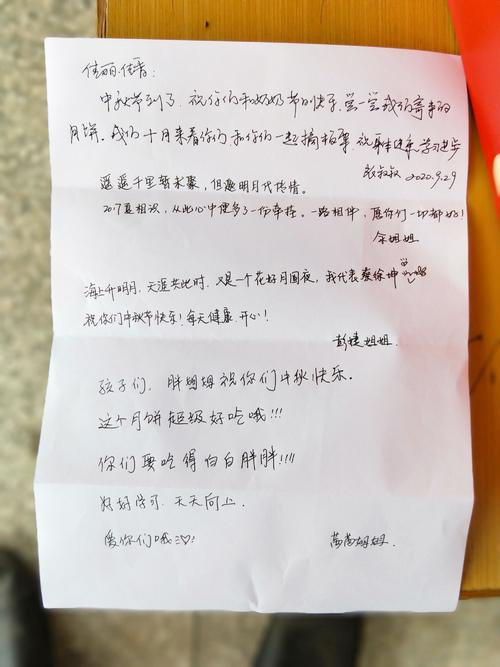 佳丽.佳香:
中秋节到了.祝你们和奶奶节日快乐.尝一尝我们寄来的
月饼。我们十月来看你们和你们一起摘板栗.祝身体健康学习进步
叔叔 2020.9.29
遥遥千里暂未聚,但邀明月代传情。
2017夏相识,从此心中便多了一份牵挂。一路相伴,愿你们一切都好!
余姐姐
海上升明月,天涯共此时,又是一个花好月圆夜,我代表蔡徐坤
祝你们中秋节快乐!每天健康、开心!
彭婕姐姐.
孩子们,胖姐姐祝你们中秋快乐.
这个月饼超级好吃哦!!!
你们要吃得白白胖胖!!!!
好好学习.天天向上.
爱你们哦
姐姐.